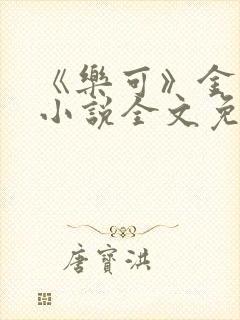 《樂可》金
小說全文免
唐寶洪